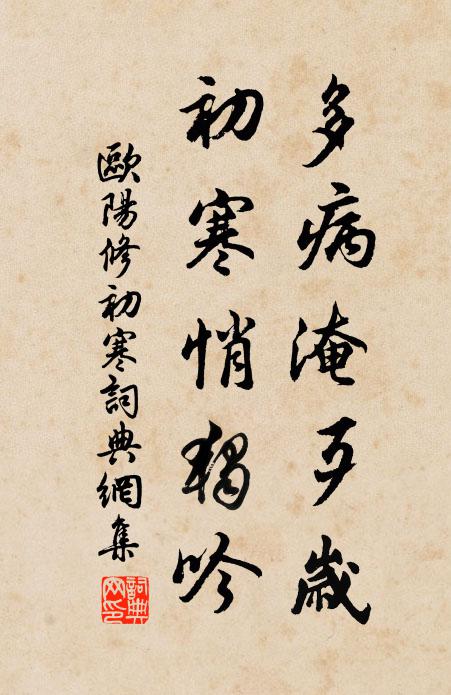 多病淹歹歲
初寒悄獨吟
歐陽修初寒詞典網集
詞典
网印